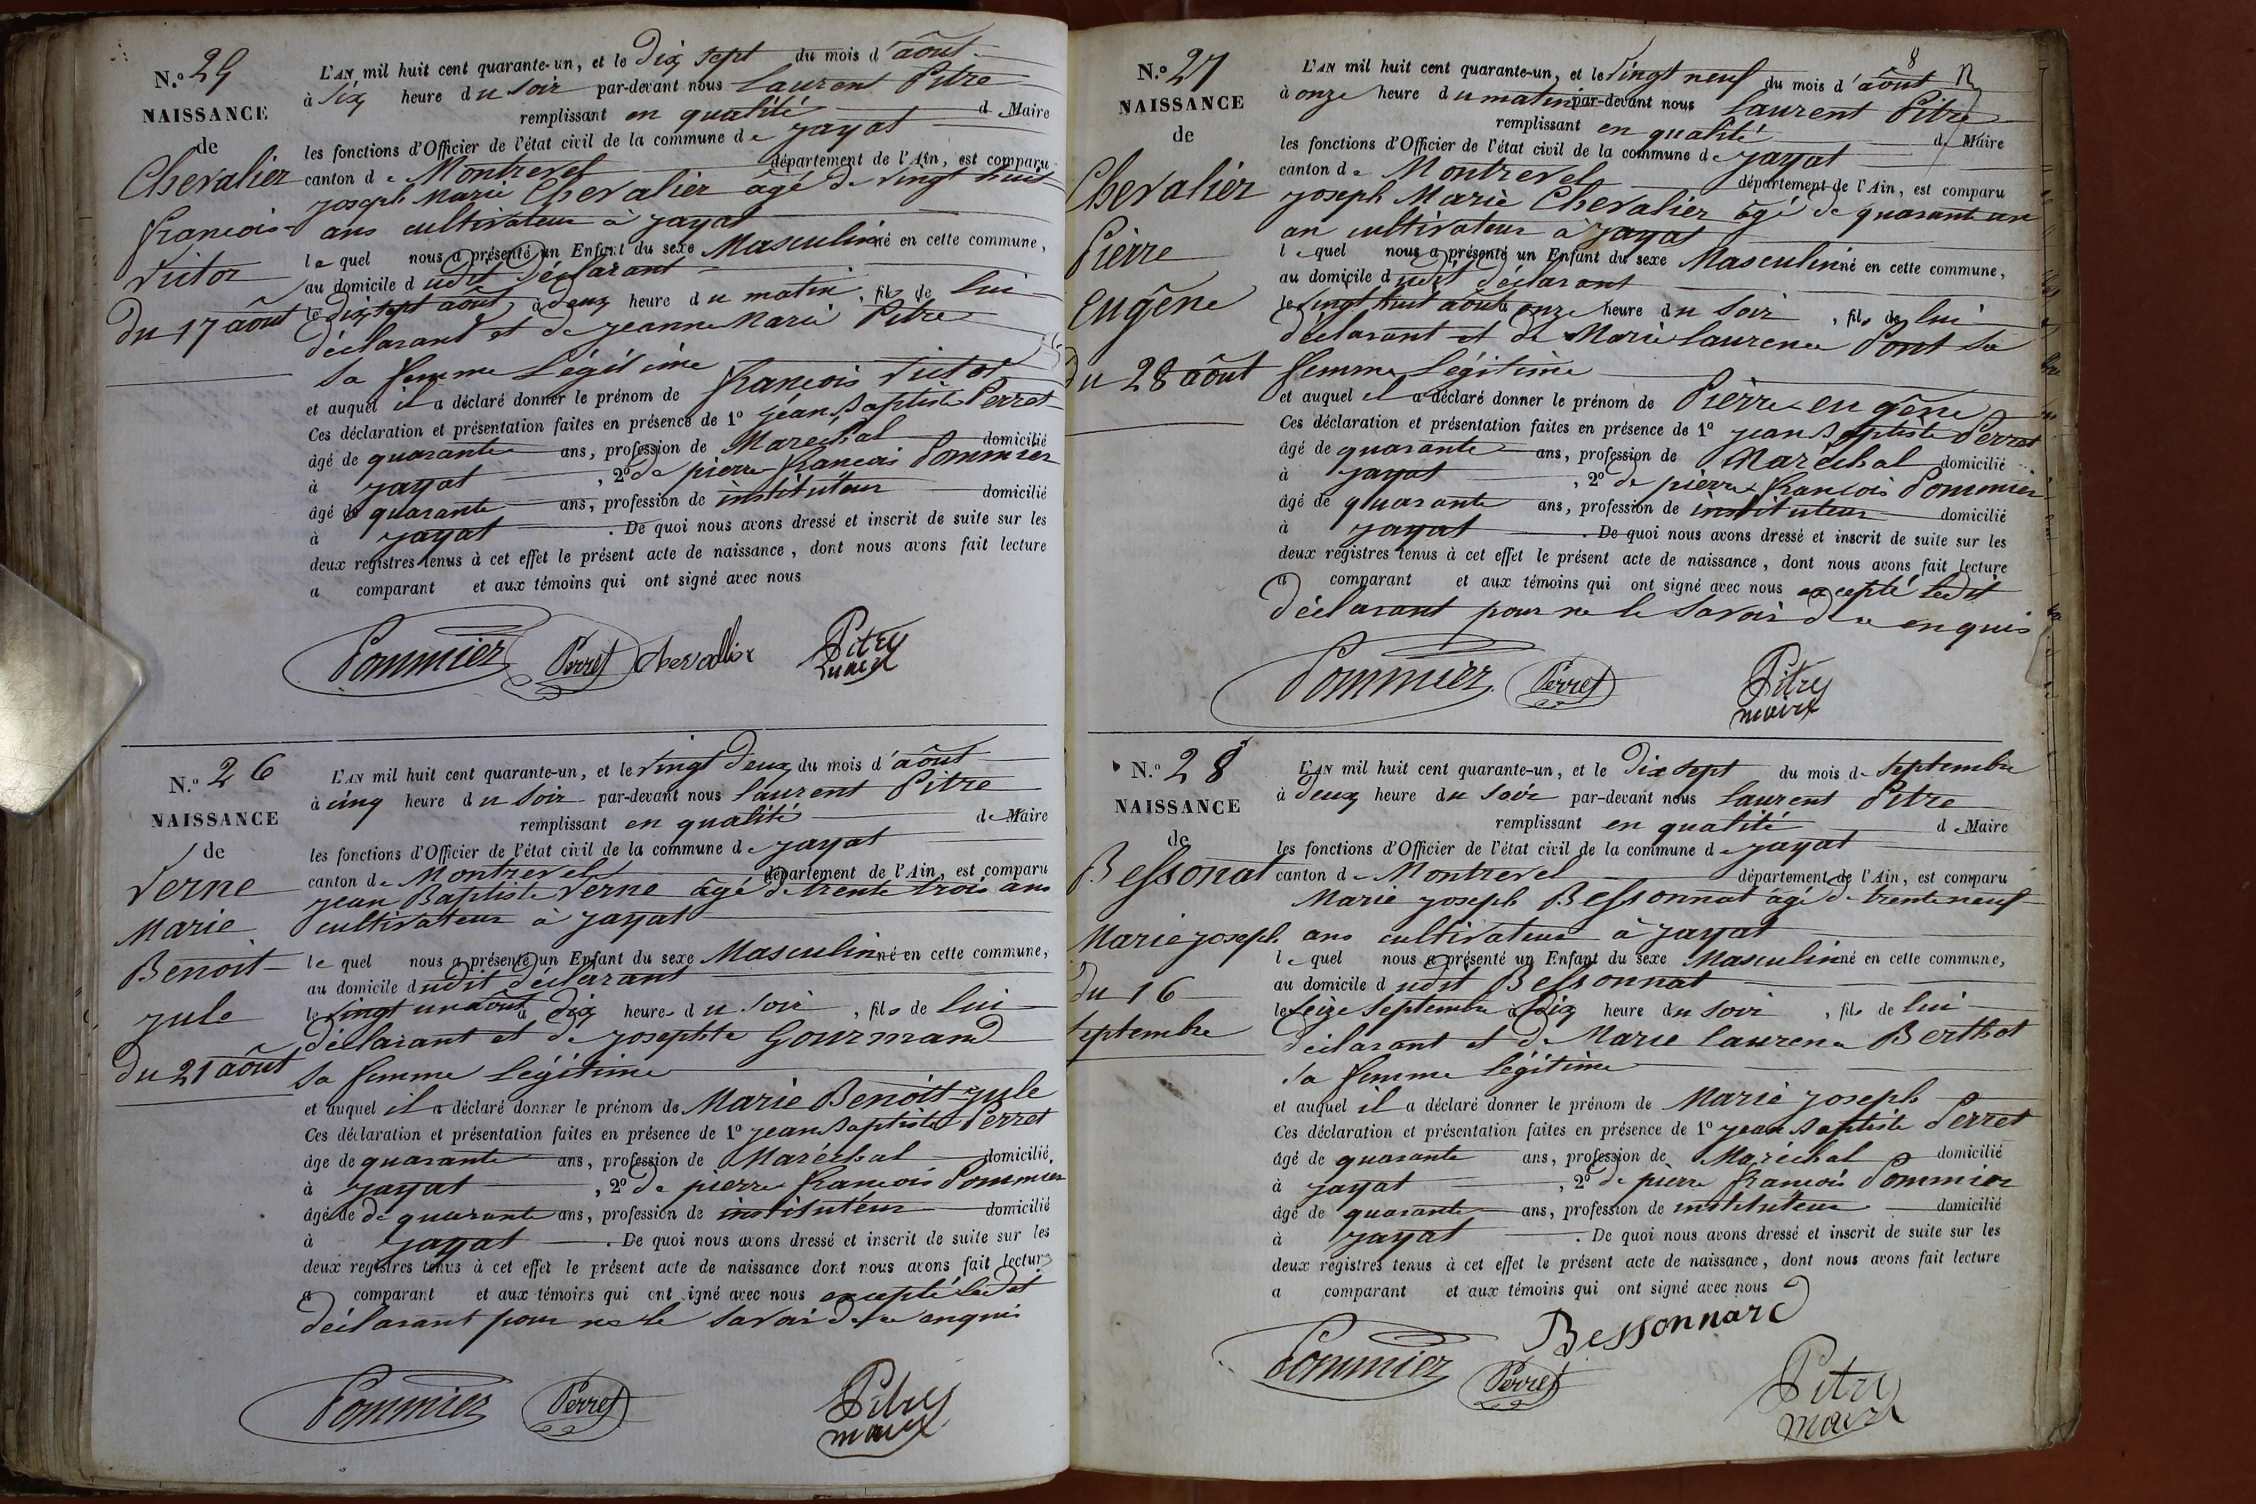 N.º 25
NAISSANCE
de
Chevalier
francois
victor
du 17 août
L'AN mil huit cent quarante-un, et le dix sept du mois d'août
à six heure du soir par-devant nous laurent Pitre
remplissant en qualité de Maire
les fonctions d'Officier de l'état civil de la commune de jayat
canton de Montrevel département de l'Ain, est comparu
joseph Marie Chevalier âgé de vingt huit
ans cultivateur à jayat
lequel nous a présenté un Enfant du sexe Masculin né en cette commune,
au domicile dudit déclarant
le dix sept août à deux heure du matin, fils de lui
déclarant et de jeanne Marie Pitre
sa femme Légitime
et auquel il a déclaré donner le prénom de francois victor
Ces déclaration et présentation faites en présence de 1º jean Baptiste Perret
âgé de quarante ans, profession de Maréchal domicilié
à jayat, 2º de pierre francois Pommier
âgé de quarante ans, profession de instituteur domicilié
à jayat. De quoi nous avons dressé et inscrit de suite sur les
deux registres tenus à cet effet le présent acte de naissance, dont nous avons fait lecture
a comparant et aux témoins qui ont signé avec nous
Pommier Perret chevallier Pitre
maire
N.º 26
NAISSANCE
de
Verne
Marie
Benoit
jule
du 21 août
L'AN mil huit cent quarante-un, et le vingt deux du mois d'août
à cinq heure du soir par-devant nous laurent Pitre
remplissant en qualité de Maire
les fonctions d'Officier de l'état civil de la commune de jayat
canton de Montrevel département de l'Ain, est comparu
jean Baptiste Verne âgé de trente trois ans
cultivateur à jayat
lequel nous a présenté un Enfant du sexe Masculin né en cette commune,
au domicile dudit déclarant
le vingt un août à dix heure du soir, fils de lui
déclarant et de josephte Gourmand
sa femme Légitime
et auquel il a déclaré donner le prénom de Marie Benoit jule
Ces déclaration et présentation faites en présence de 1º jean Baptiste Perret
âge de quarante ans, profession de Maréchal domicilié
à jayat, 2º de pierre francois Pommier
âgé de de quarante ans, profession de instituteur domicilié
à jayat. De quoi nous avons dressé et inscrit de suite sur les
deux registres tenus à cet effet le présent acte de naissance dont nous avons fait lecture
a comparant et aux témoins qui ont signé avec nous excepté ledit
déclarant pour ne le savoir de ce enquis
Pommier Perret Pitre
maire
8
N.º 27
NAISSANCE
de
Chevalier
Pierre
Eugène
du 28 août
L'AN mil huit cent quarante-un, et le vingt neuf du mois d'août
à onze heure du matin par-devant nous laurent Pitre
remplissant en qualité de Maire
les fonctions d'Officier de l'état civil de la commune de jayat
canton de Montrevel département de l'Ain, est comparu
joseph Marie Chevalier âgé de quarante un
an cultivateur à jayat
lequel nous a présenté un Enfant du sexe Masculin né en cette commune,
au domicile dudit déclarant
le vingt huit août à onze heure du soir, fils de lui
déclarant et de Marie laurence Pont sa
femme Légitime
et auquel il a déclaré donner le prénom de Pierre eugène
Ces déclaration et présentation faites en présence de 1º jean Baptiste Perret
âgé de quarante ans, profession de Maréchal domicilié
à jayat, 2º de pierre francois Pommier
âgé de quarante ans, profession de instituteur domicilié
à jayat. De quoi nous avons dressé et inscrit de suite sur les
deux registres tenus à cet effet le présent acte de naissance, dont nous avons fait lecture
a comparant et aux témoins qui ont signé avec nous excepté ledit
déclarant pour ne le savoir de ce enquis
Pommier Perret Pitre
maire
N.º 28
NAISSANCE
de
Bessonat
Marie joseph
du 16
septembre
L'AN mil huit cent quarante-un, et le dix sept du mois de septembre
à deux heure du soir par-devant nous laurent Pitre
remplissant en qualité de Maire
les fonctions d'Officier de l'état civil de la commune de jayat
canton de Montrevel département de l'Ain, est comparu
Marie joseph Bessonnat âgé de trente neuf
ans cultivateur à jayat
lequel nous a présenté un Enfant du sexe Masculin né en cette commune,
au domicile dudit Bessonnat
le seize septembre à dix heure du soir, fils de lui
déclarant et de Marie laurence Berthot
sa femme légitime
et auquel il a déclaré donner le prénom de Marie joseph
Ces déclaration et présentation faites en présence de 1º jean Baptiste Perret
âgé de quarante ans, profession de Maréchal domicilié
à jayat, 2º de pierre francois Pommier
âgé de quarante ans, profession de instituteur domicilié
à jayat. De quoi nous avons dressé et inscrit de suite sur les
deux registres tenus à cet effet le présent acte de naissance, dont nous avons fait lecture
a comparant et aux témoins qui ont signé avec nous
Bessonnard
Pommier Perret Pitre
maire